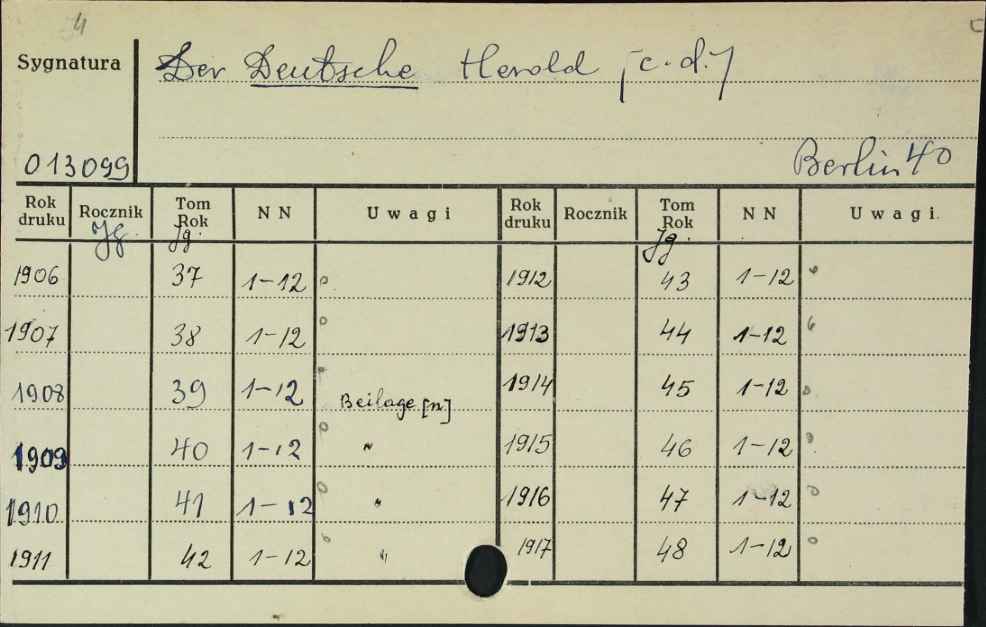 4
Sygnatura
Der Deutsche Herold [c.d.]
013099
Berlin 40
Rok druku Rocznik Tom Rok NN Uwagi Rok druku Rocznik Tom Rok NN Uwagi
Jg. Jg. Jg.
1906 37 1-12 o 1912 43 1-12 o
1907 38 1-12 o 1913 44 1-12 o
1908 39 1-12 o Beilage[n] 1914 45 1-12 o
1909 40 1-12 o " 1915 46 1-12 o
1910 41 1-12 o " 1916 47 1-12 o
1911 42 1-12 o " 1917 48 1-12 o